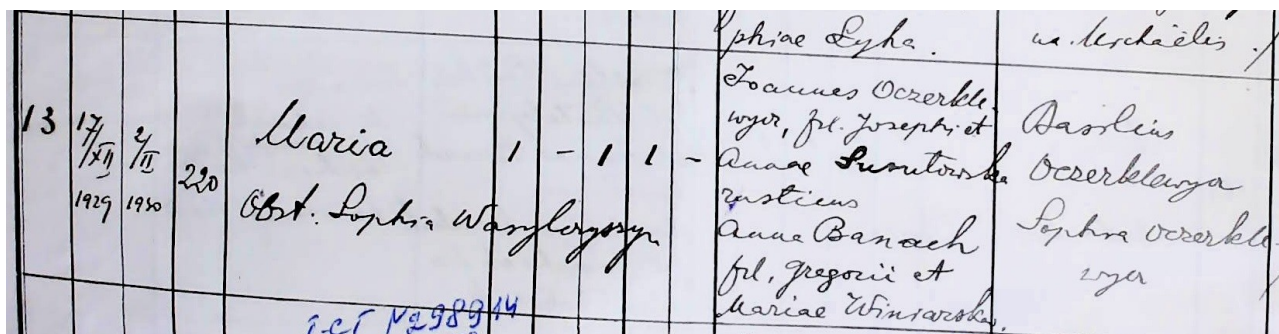 phiae Łyha.
na. Michaëlis
13 17/XII 1929 2/II 1930 220 Maria 1 - 1 1 -
Obst. Sophia Wasylczyszyn
Joannes Oczerkle-
wycz, fil. Josephi et
Annae Susulowska
rusticus
Anna Banach
fil. Gregorii et
Mariae Winiarska.
Basilius
Oczerklewycz
Sophia Oczerkle-
wycz
№298914